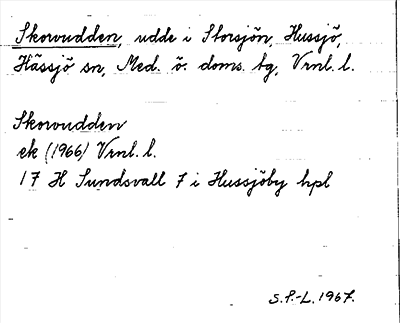 Skorvudden, udde i Storsjön, Hussjö,
Hässjö sn, Med. ö. doms. bg, Vrnl. l.
Skorvudden
ek (1966) Vrnl. l.
17 H Sundsvall 7 i Hussjöby hpl
S.P.-L. 1967.